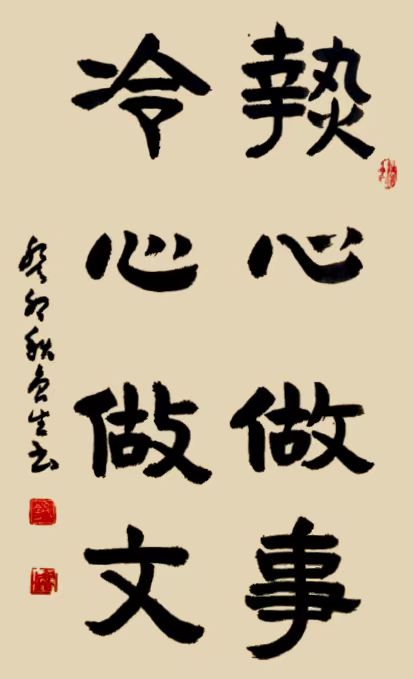 熱心做事
冷心做文
癸卯秋 生书